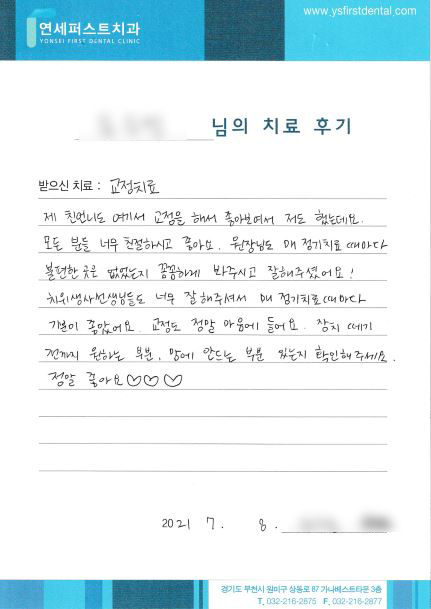 www.ysfirstdental.com
연세퍼스트치과
YONSEI FIRST DENTAL CLINIC
님의 치료 후기
받으신 치료 : 교정치료
제 친언니도 여기서 교정을 해서 좋아보여서 저도 했는데요.
모든 분들 너무 친절하시고 좋아요. 원장님도 매 정기치료 때마다
불편한 곳은 없었는지 꼼꼼하게 봐주시고 잘해주셨어요!
치위생사선생님들도 너무 잘해주셔서 매 정기치료때마다
기분이 좋았어요. 교정도 정말 마음에 들어요. 장치 떼기
전까지 원하는 부분, 맘에 안드는 부분 있는지 확인해주세요.
정말 좋아요♡♡♡
2021 7. 8.
경기도 부천시 원미구 상동로 87 가나베스트타운 3층
T. 032-216-2875 F. 032-216-2877